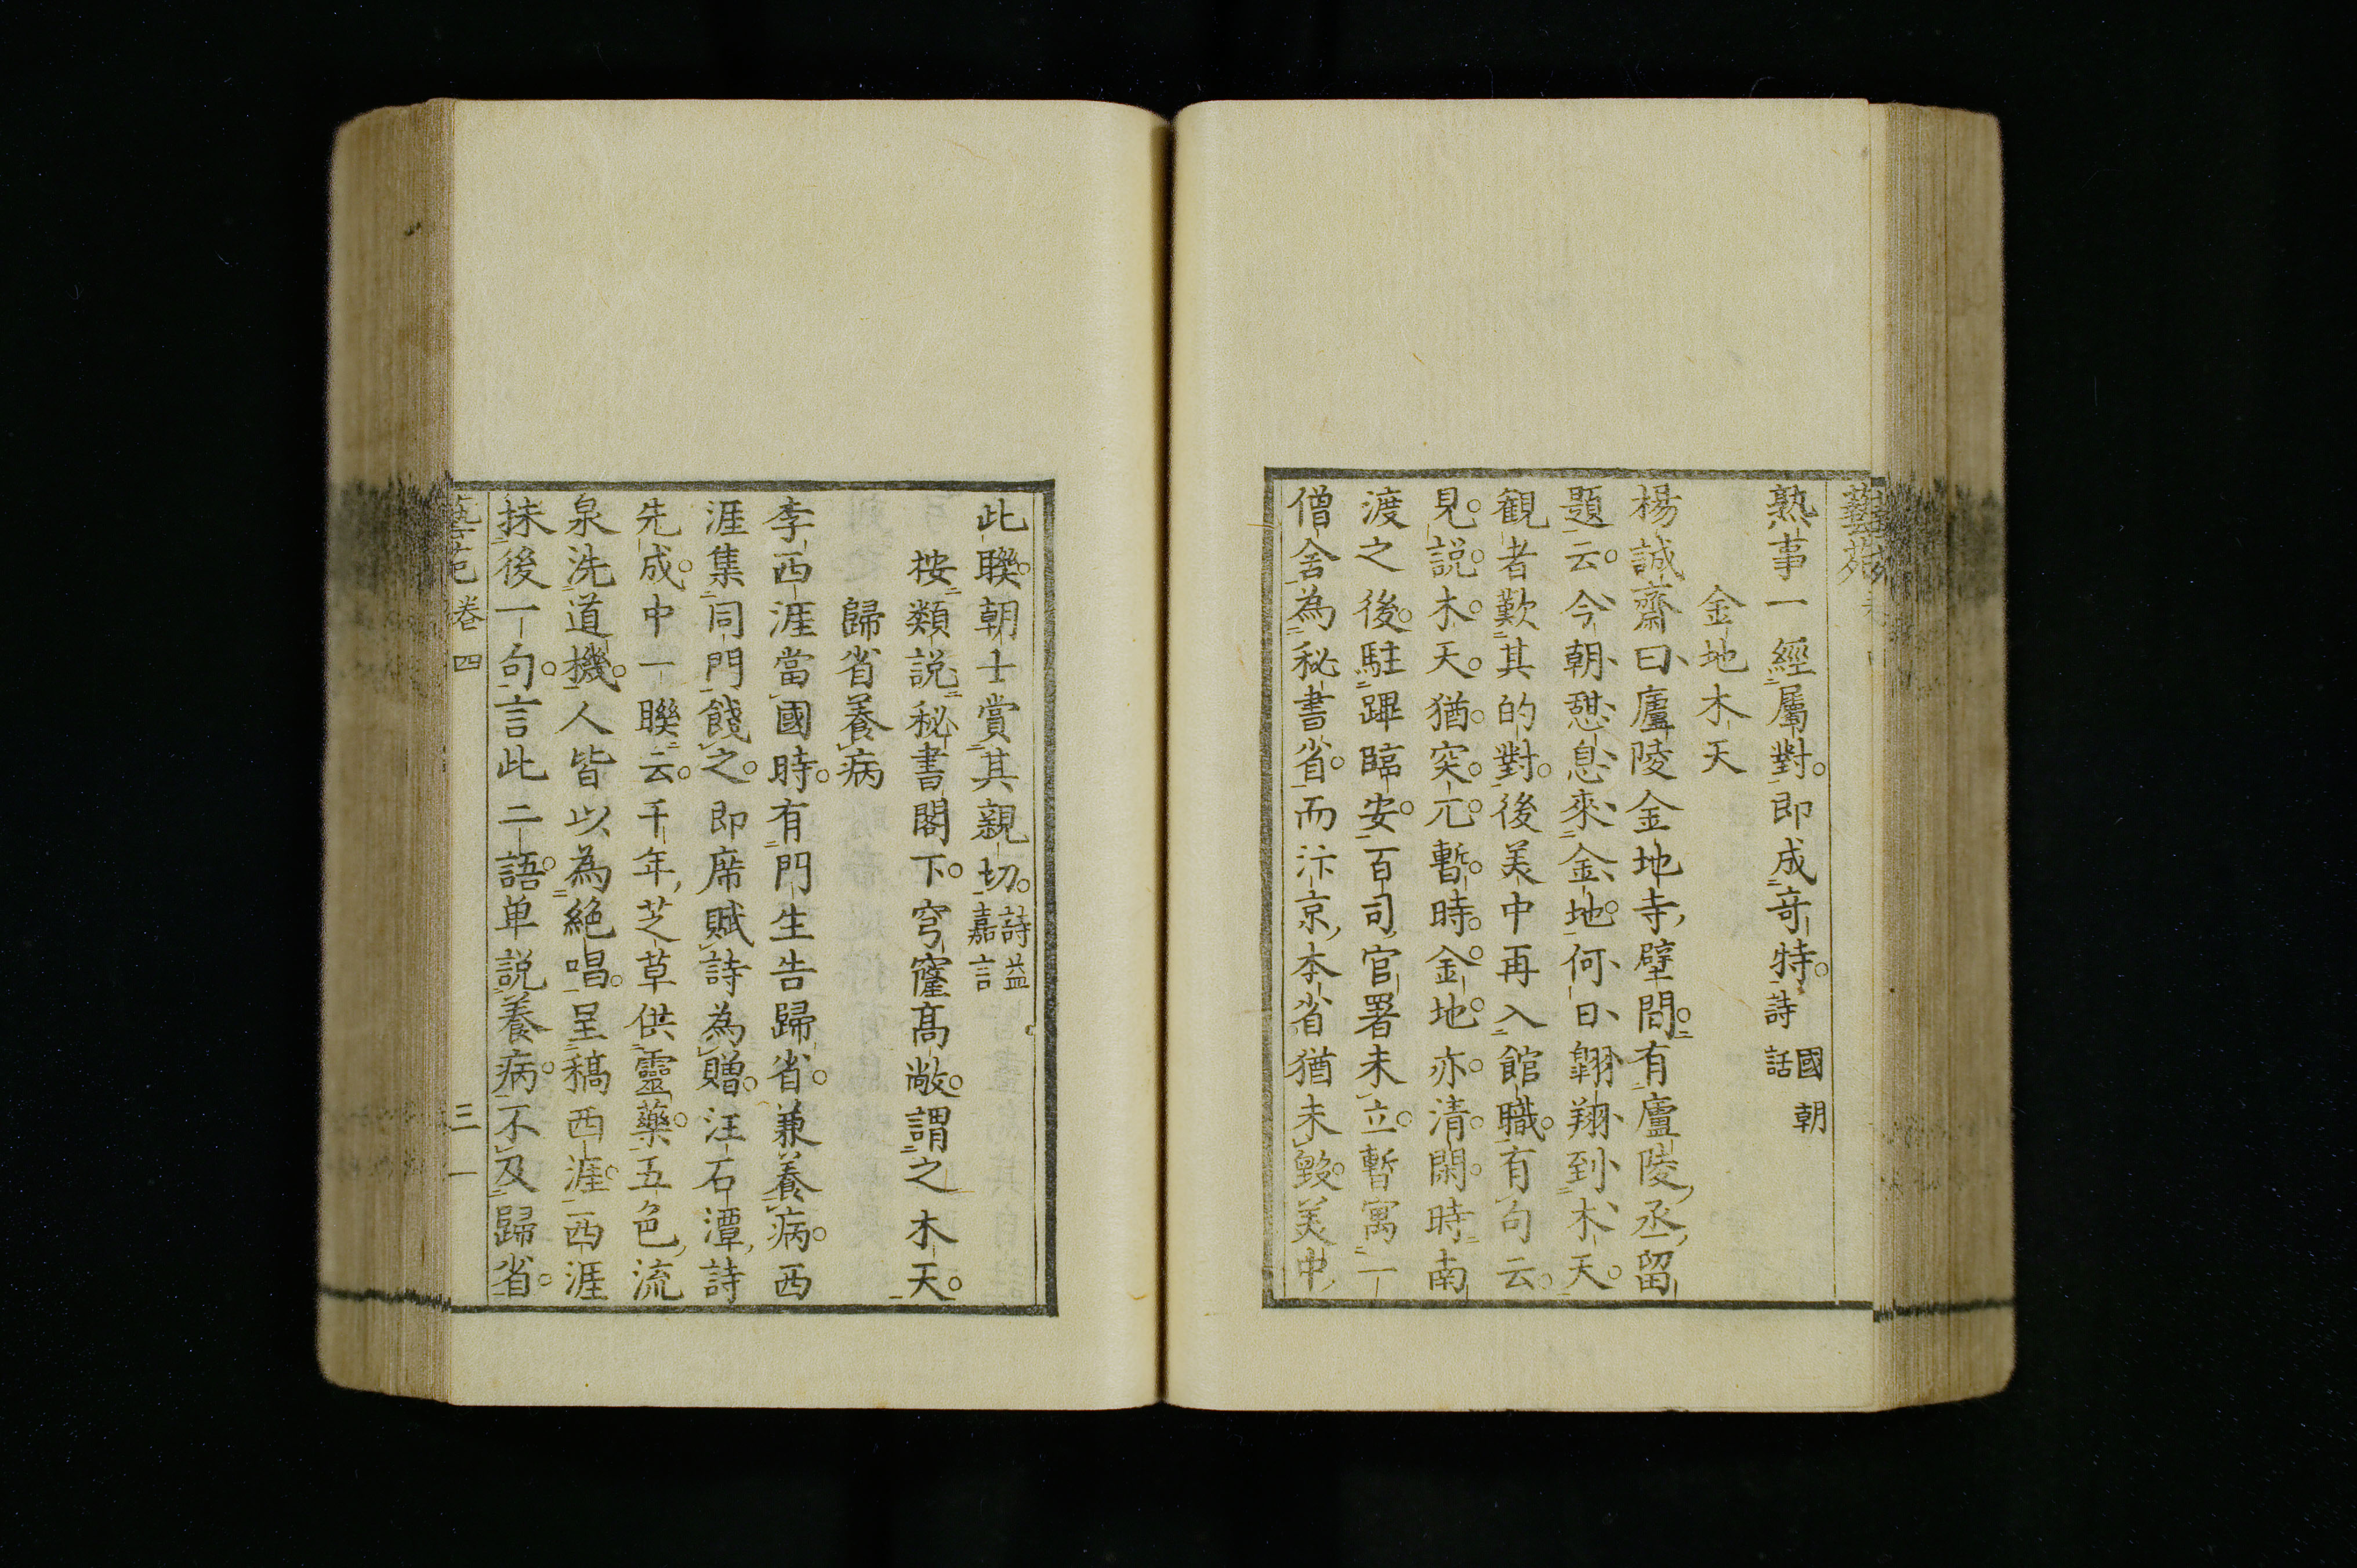 藝苑
熟事一經屬對即成奇特詩國朝話
金地木天
楊誠齋曰廬陵金地寺壁間有廬陵丞留
題云今朝憇息來金地何日翺翔到木天
観者歎其的對後美中再入館職有句云
見説木天猶突兀暫時金地亦清閑時南
渡之後駐蹕臨安百司官署未立暫寓一
僧舍為秘書省而汴京本省猶未毀美中
此聯朝士賞其親切詩益嘉言
按類説秘書閣下穹窿髙敞謂之木天
歸省養病
李西涯當國時有門生告歸省兼養病西
涯集同門餞之即席賦詩為贈汪石潭詩
先成中一聯云千年芝草供靈藥五色流
泉洗道機人皆以為絶唱呈稿西涯西涯
抹後一句言此二語単説養病不及歸省
藝苑 卷四 三一